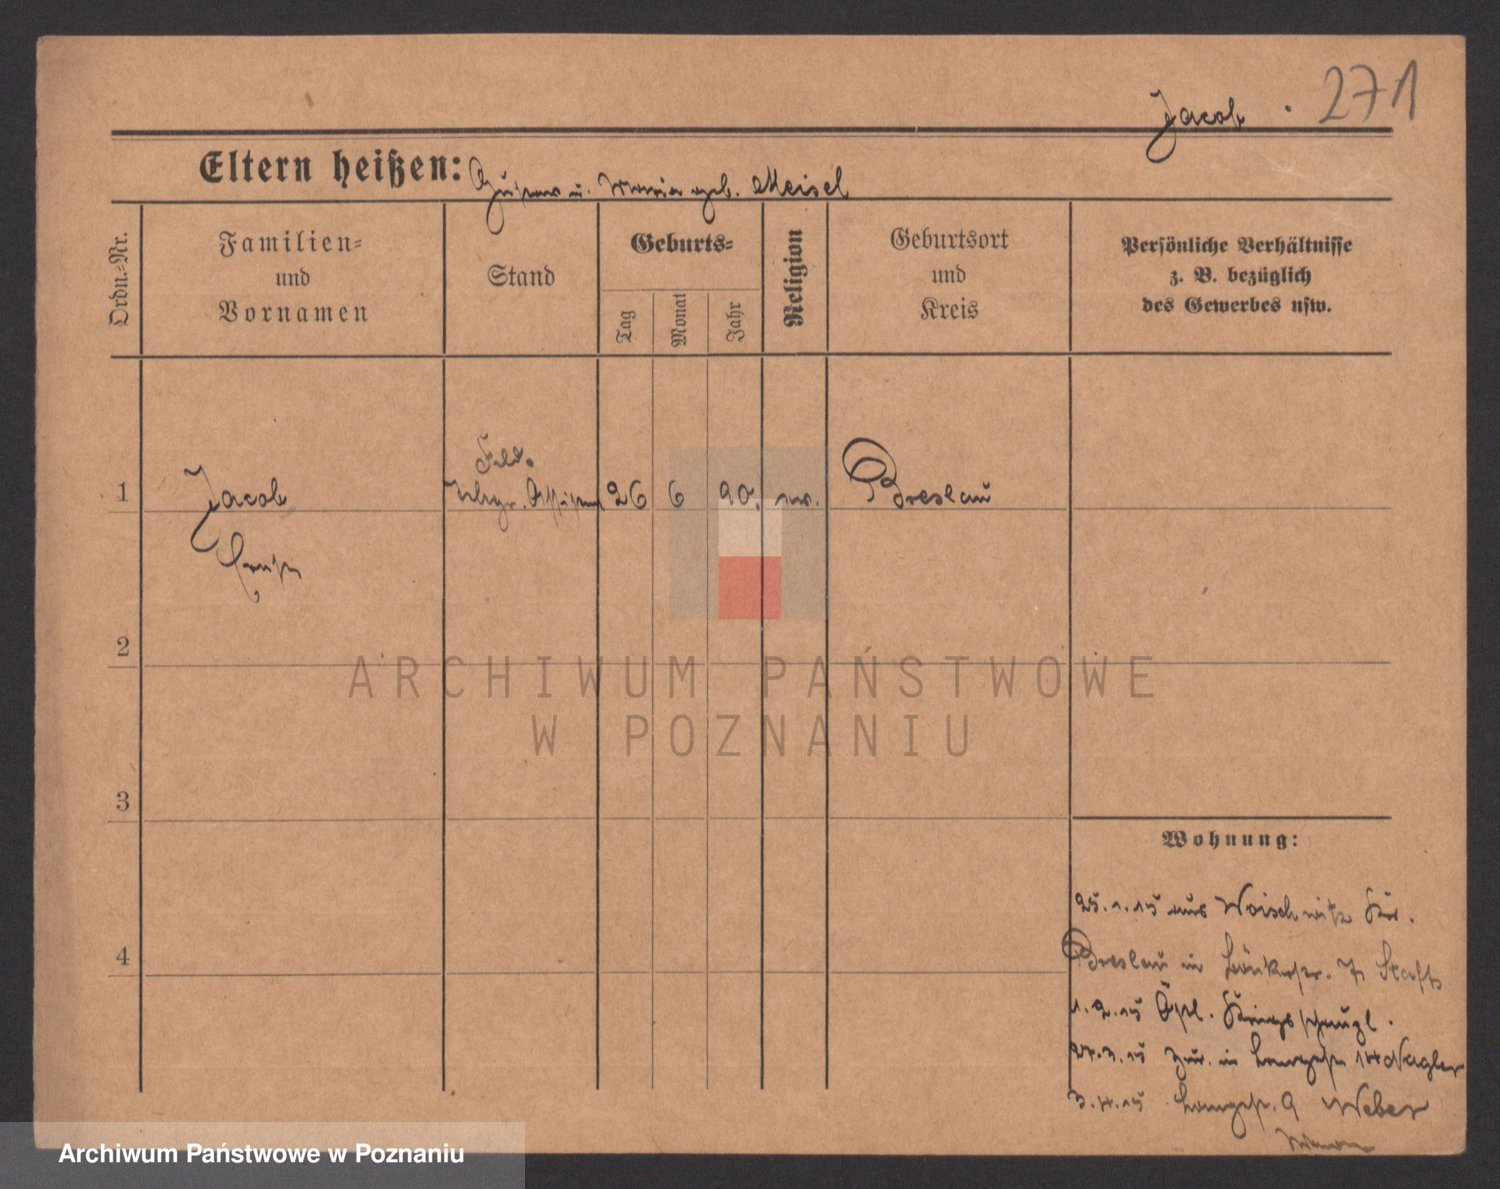 Jacob. 271
Eltern heißen: Gustav u. Maria geb. Meisel
Ordn.=Nr.
Familien=
und
Vornamen
Stand
Geburts=
Tag
Monat
Jahr
Religion
Geburtsort
und
Kreis
Persönliche Verhältnisse
z. B. bezüglich
des Gewerbes usw.
Feld.
1 Jacob 26 6 90. ev. Breslau
2
3
4
Wohnung:
25.1.15 aus Woischwitz Kr.
Breslau in
1.2.15
zur. in Nagler
3.4.15 9 Weber
ARCHIWUM PAŃSTWOWE
W POZNANIU
Archiwum Państwowe w Poznaniu